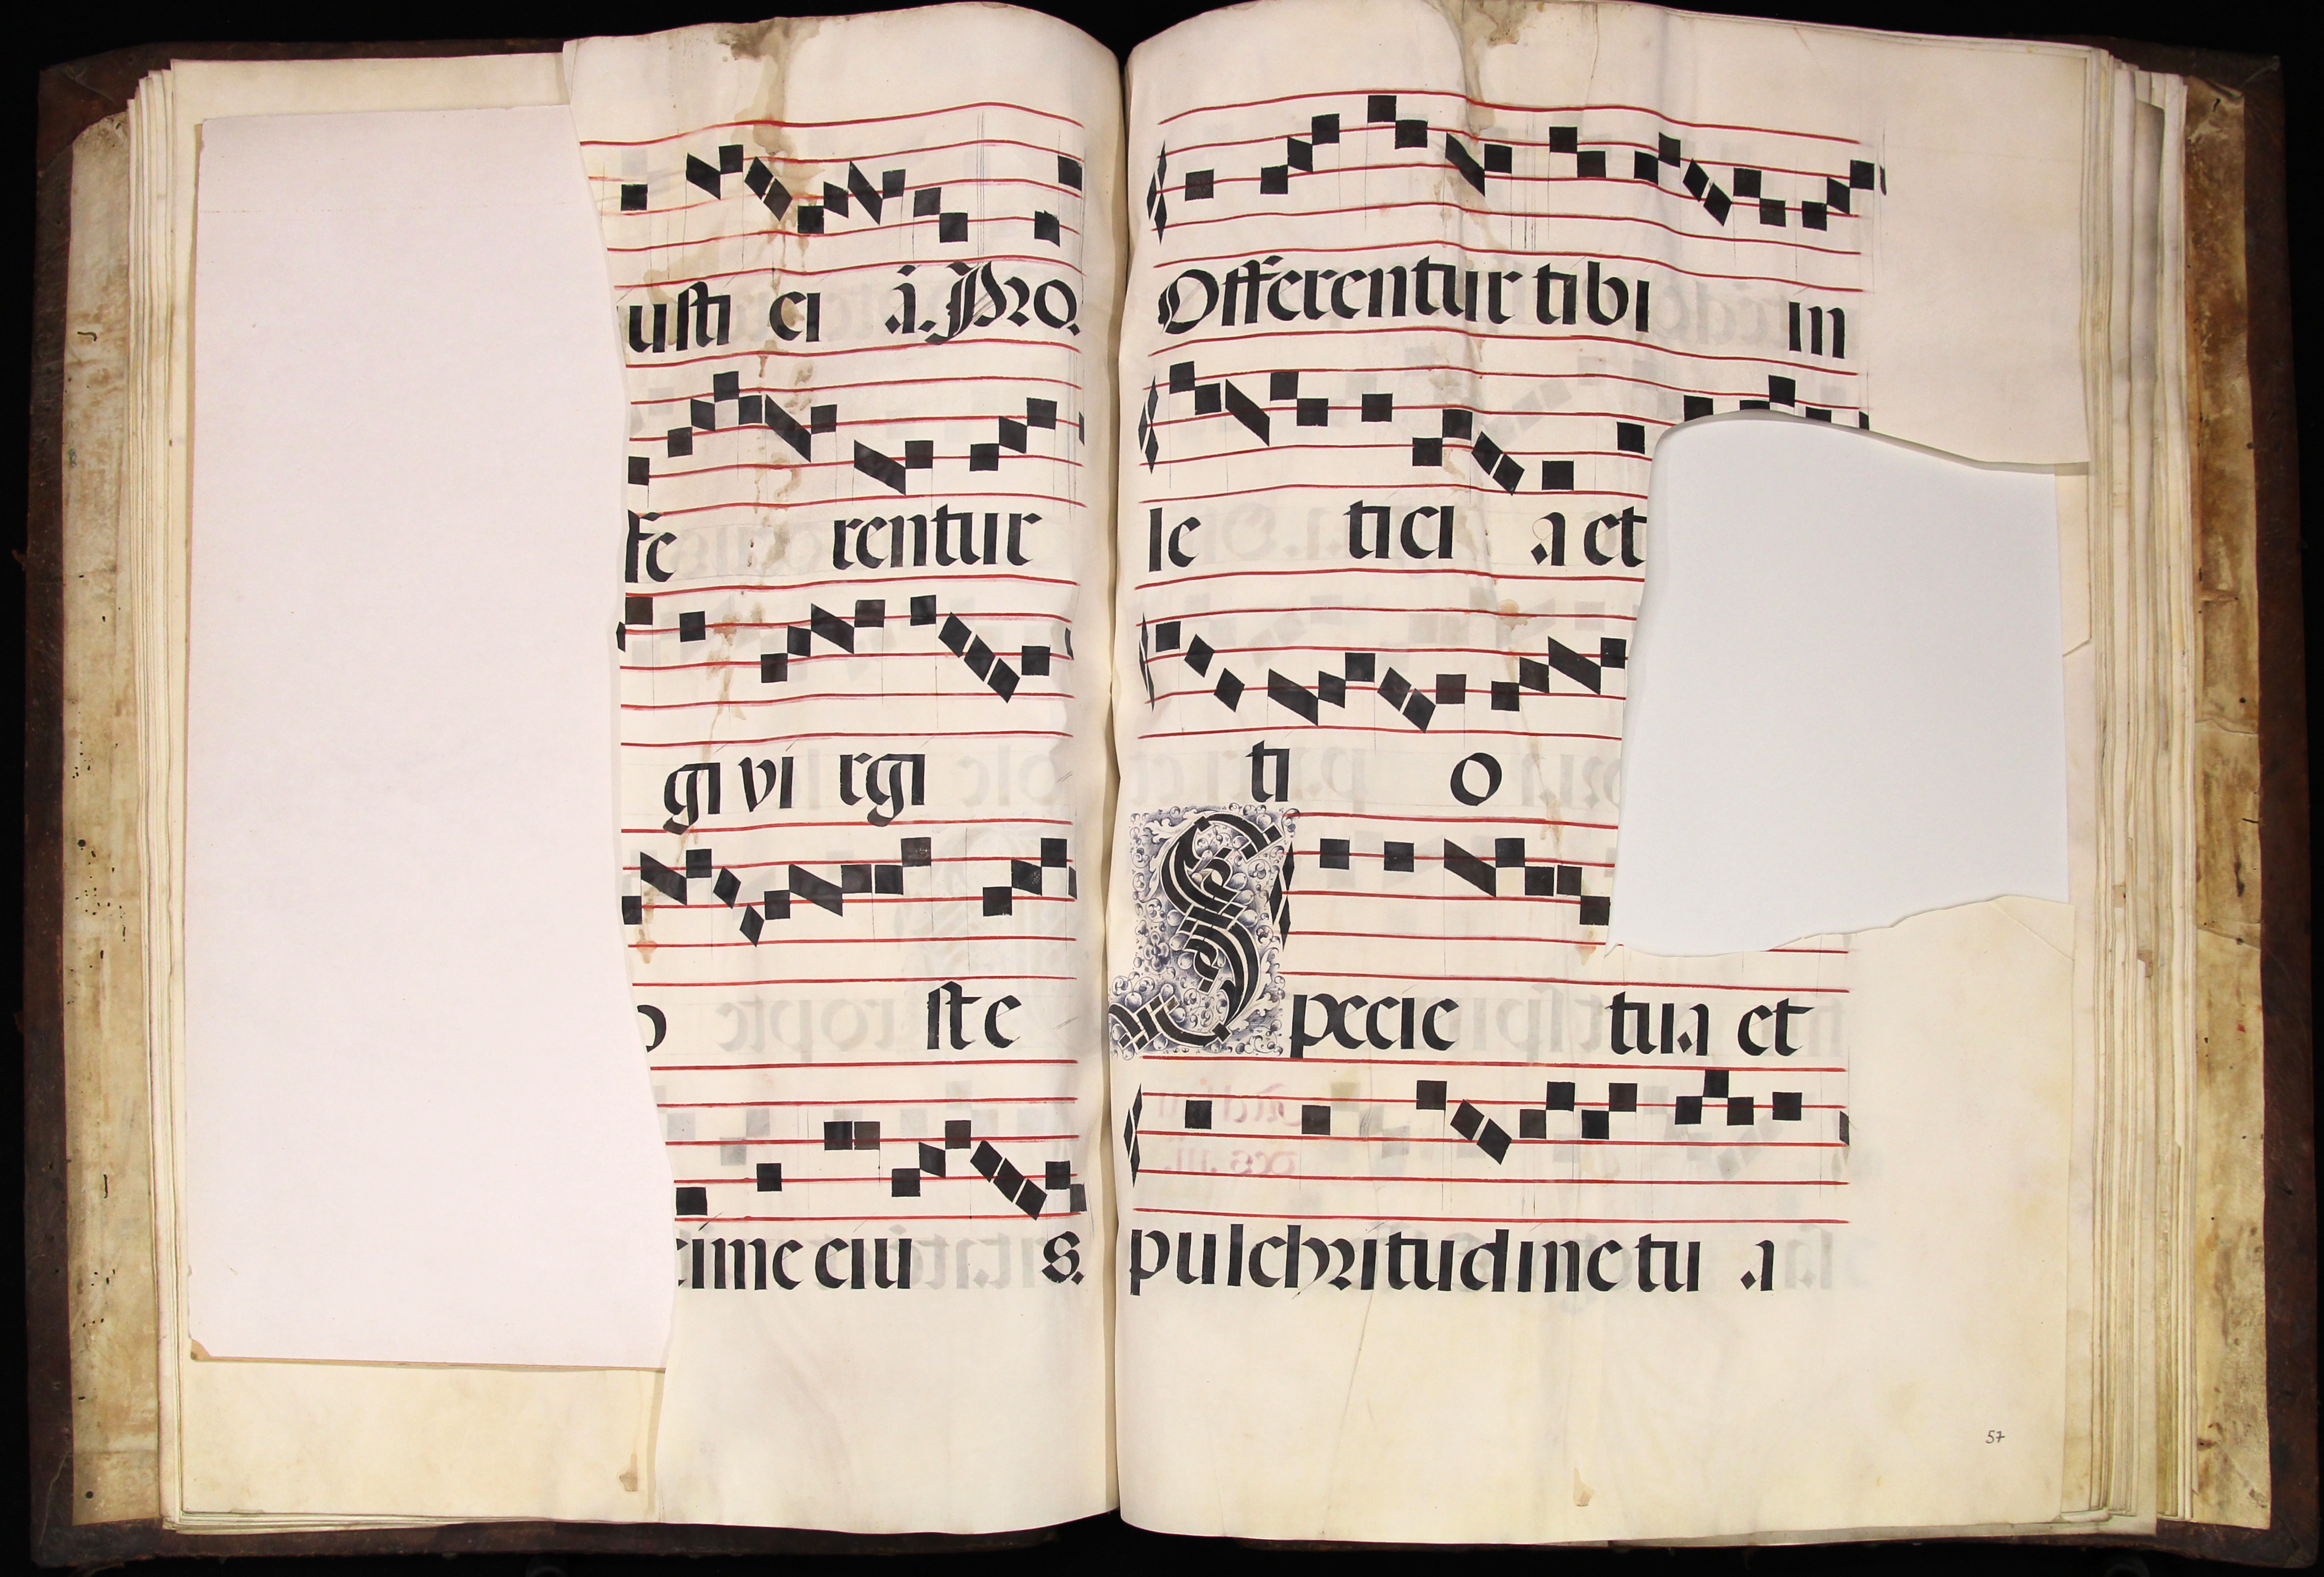 usti ci a. Pro.
fe rentur
gi vi rgi
o ste
cime eiu s.
Offerentur tibi in
le tici a et
ti o
Specie tua et
pulchritudine tu a
57